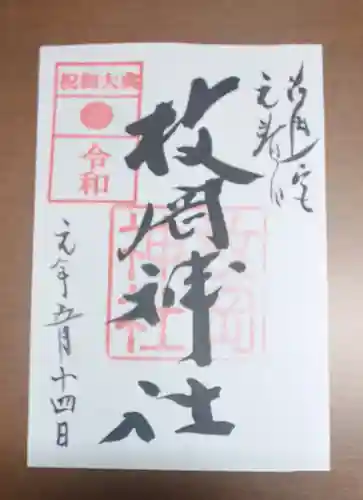 元春日
枚岡神社
枚岡
神社
祝御大典
令和
元年五月十四日